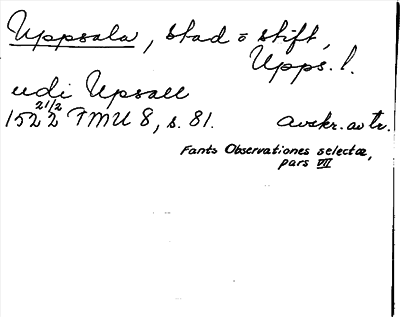 Uppsala, stad o stift,
Upps. l.
udi Upsall
21/2
1522 FMU 8, s. 81. avskr. av tr.
Fants Observationes selectæ,
pars VII